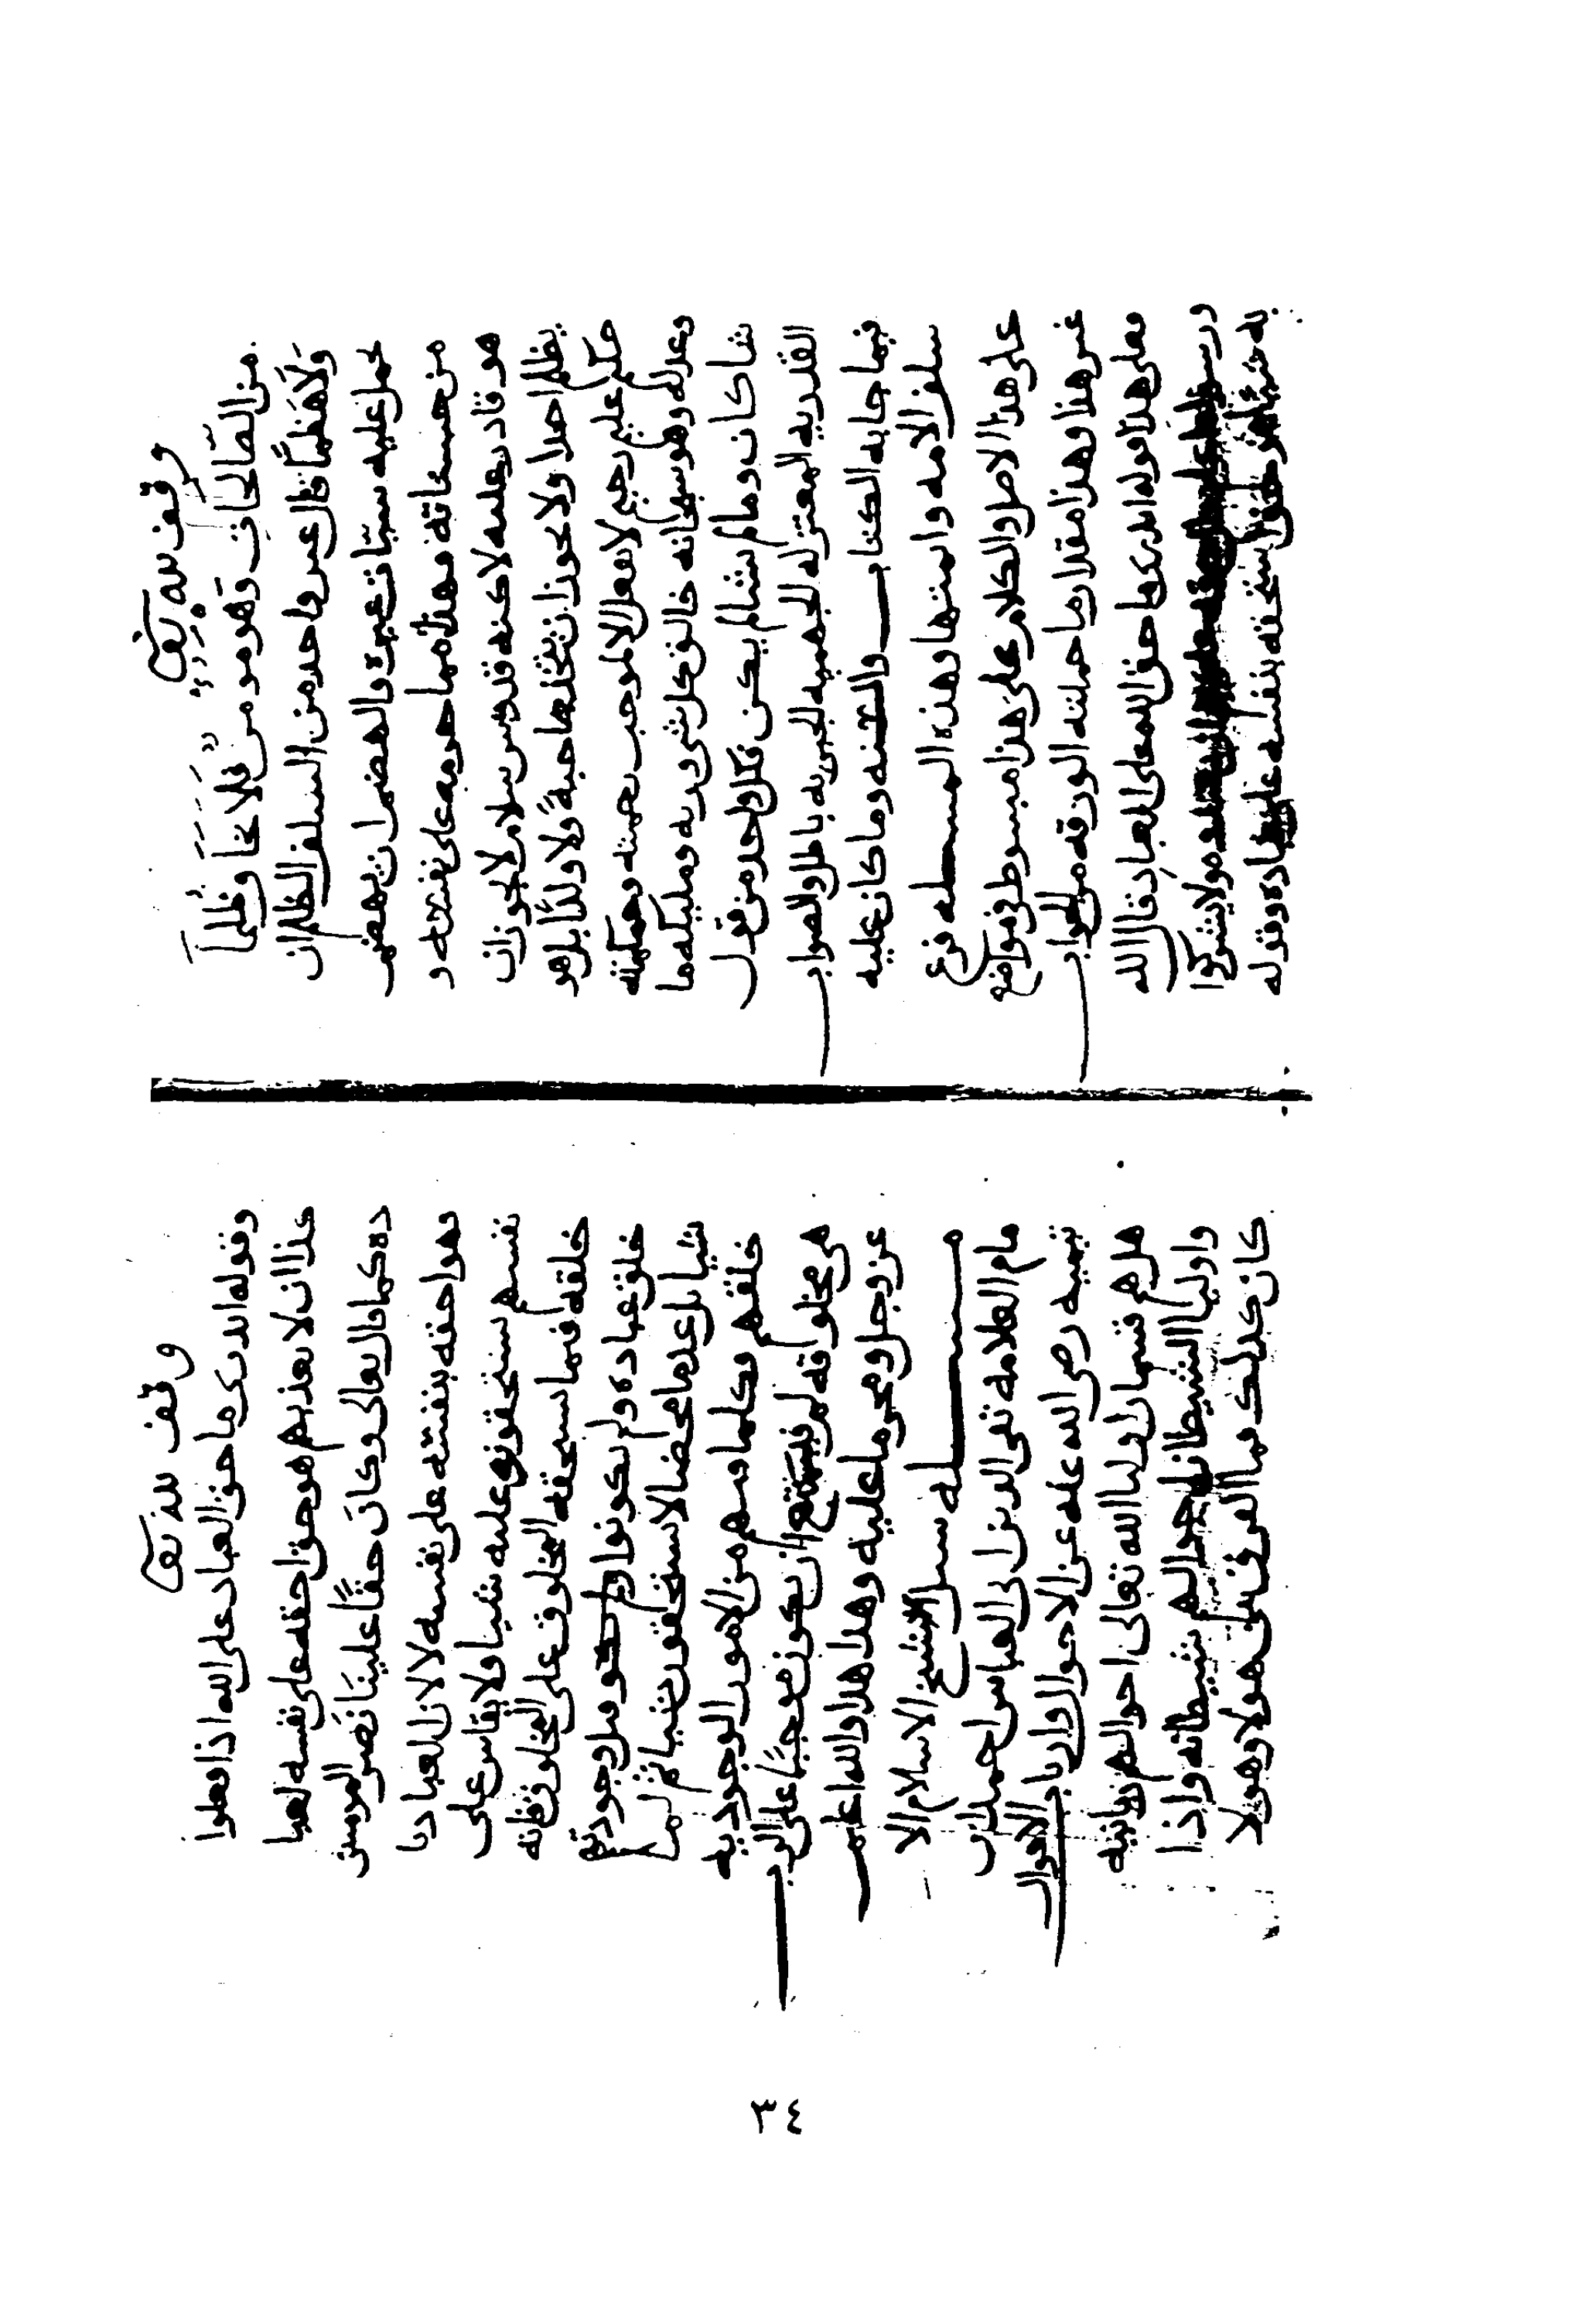 وقف لله تعالى
من الصَّالحاتِ وَهو مومن فلا يخاف ظُلماً
وَلَا هَضْماً قال غير واحد من السلف الظلم ان
يحمل عليه سيات غيره والهضم ان يهضم
من حسناته وهذا مما حرمه على نفسه و
هو قادر عليه لاكنه قدوس سلام لا يجوز ان
يظلم احدا ولا يجوز ان يتخذ صاحبةً ولا ولداً بل هو
حكم عليم رحيم لا يفعل الا لموجب رحمته وحكمته
وعدله وهو سبحانه خالق كل شي وربه ومليكه ما
شا كان وما لم يشا لم يكن فكل واحد من قول
القدريه المعتزله الجهميه الجبريه باطل والصواب
فيما جا به الكتاب والسنه وما كان عليه
سلف الامه وايمتها وهذه المسله فرع
على هذا الاصل والكلام على هذا مبسوط في مواضع
غير هذا وهذا مقدار ما حملته الورقه من الجواب
وعلى هذا قوله اتدري ما حق الله على العباد قال الله
ورسوله اعلم قال حقه عليهم ان يعبدوه ولا يشركوا
به شيا فهو حق يستحقه بنفسه على عباده وقوله
وقف لله تعالى
وقوله اتدري ما حق العباد على الله اذا فعلوا
هذا ان لا يعذبهم هو حق احقه على نفسه لعبا
ده كما قال تعالى وكان حقًّا علينَا نَصر المومنين
فهو احقه بنفسه على نفسه لا لان العباد با
نفسهم يستحقون عليه شيا ولا يقاس على
خلقه فيما يستحقه المخلوق على المخلوق فانه
خلق عباده ولم يكونوا قبل وجودهم
شيا بل عدما محضا لا يستحقون شيا ثم لما
خلقهم فكلما فيهم من الامور الوجوديه
هي مخلوقه له فيمتنع ان يكون موجبًا على الرب
عز وجل ومحرما عليه وهذا هذا والله اعلم
مسله سيل الشيخ الاسلام الا
مام العلامه تقي الدين ابي العباس احمد ابن
تيميه رضي الله عنه عن الاحوال وارباب الاحوال
هل هم قسمان اوليا الله تعالى احوالهم ربانيه
واوليا الشيطان احوالهم شيطانيه واذا
كان كذلك فما الفرق بين هولا وهولا
٣٤